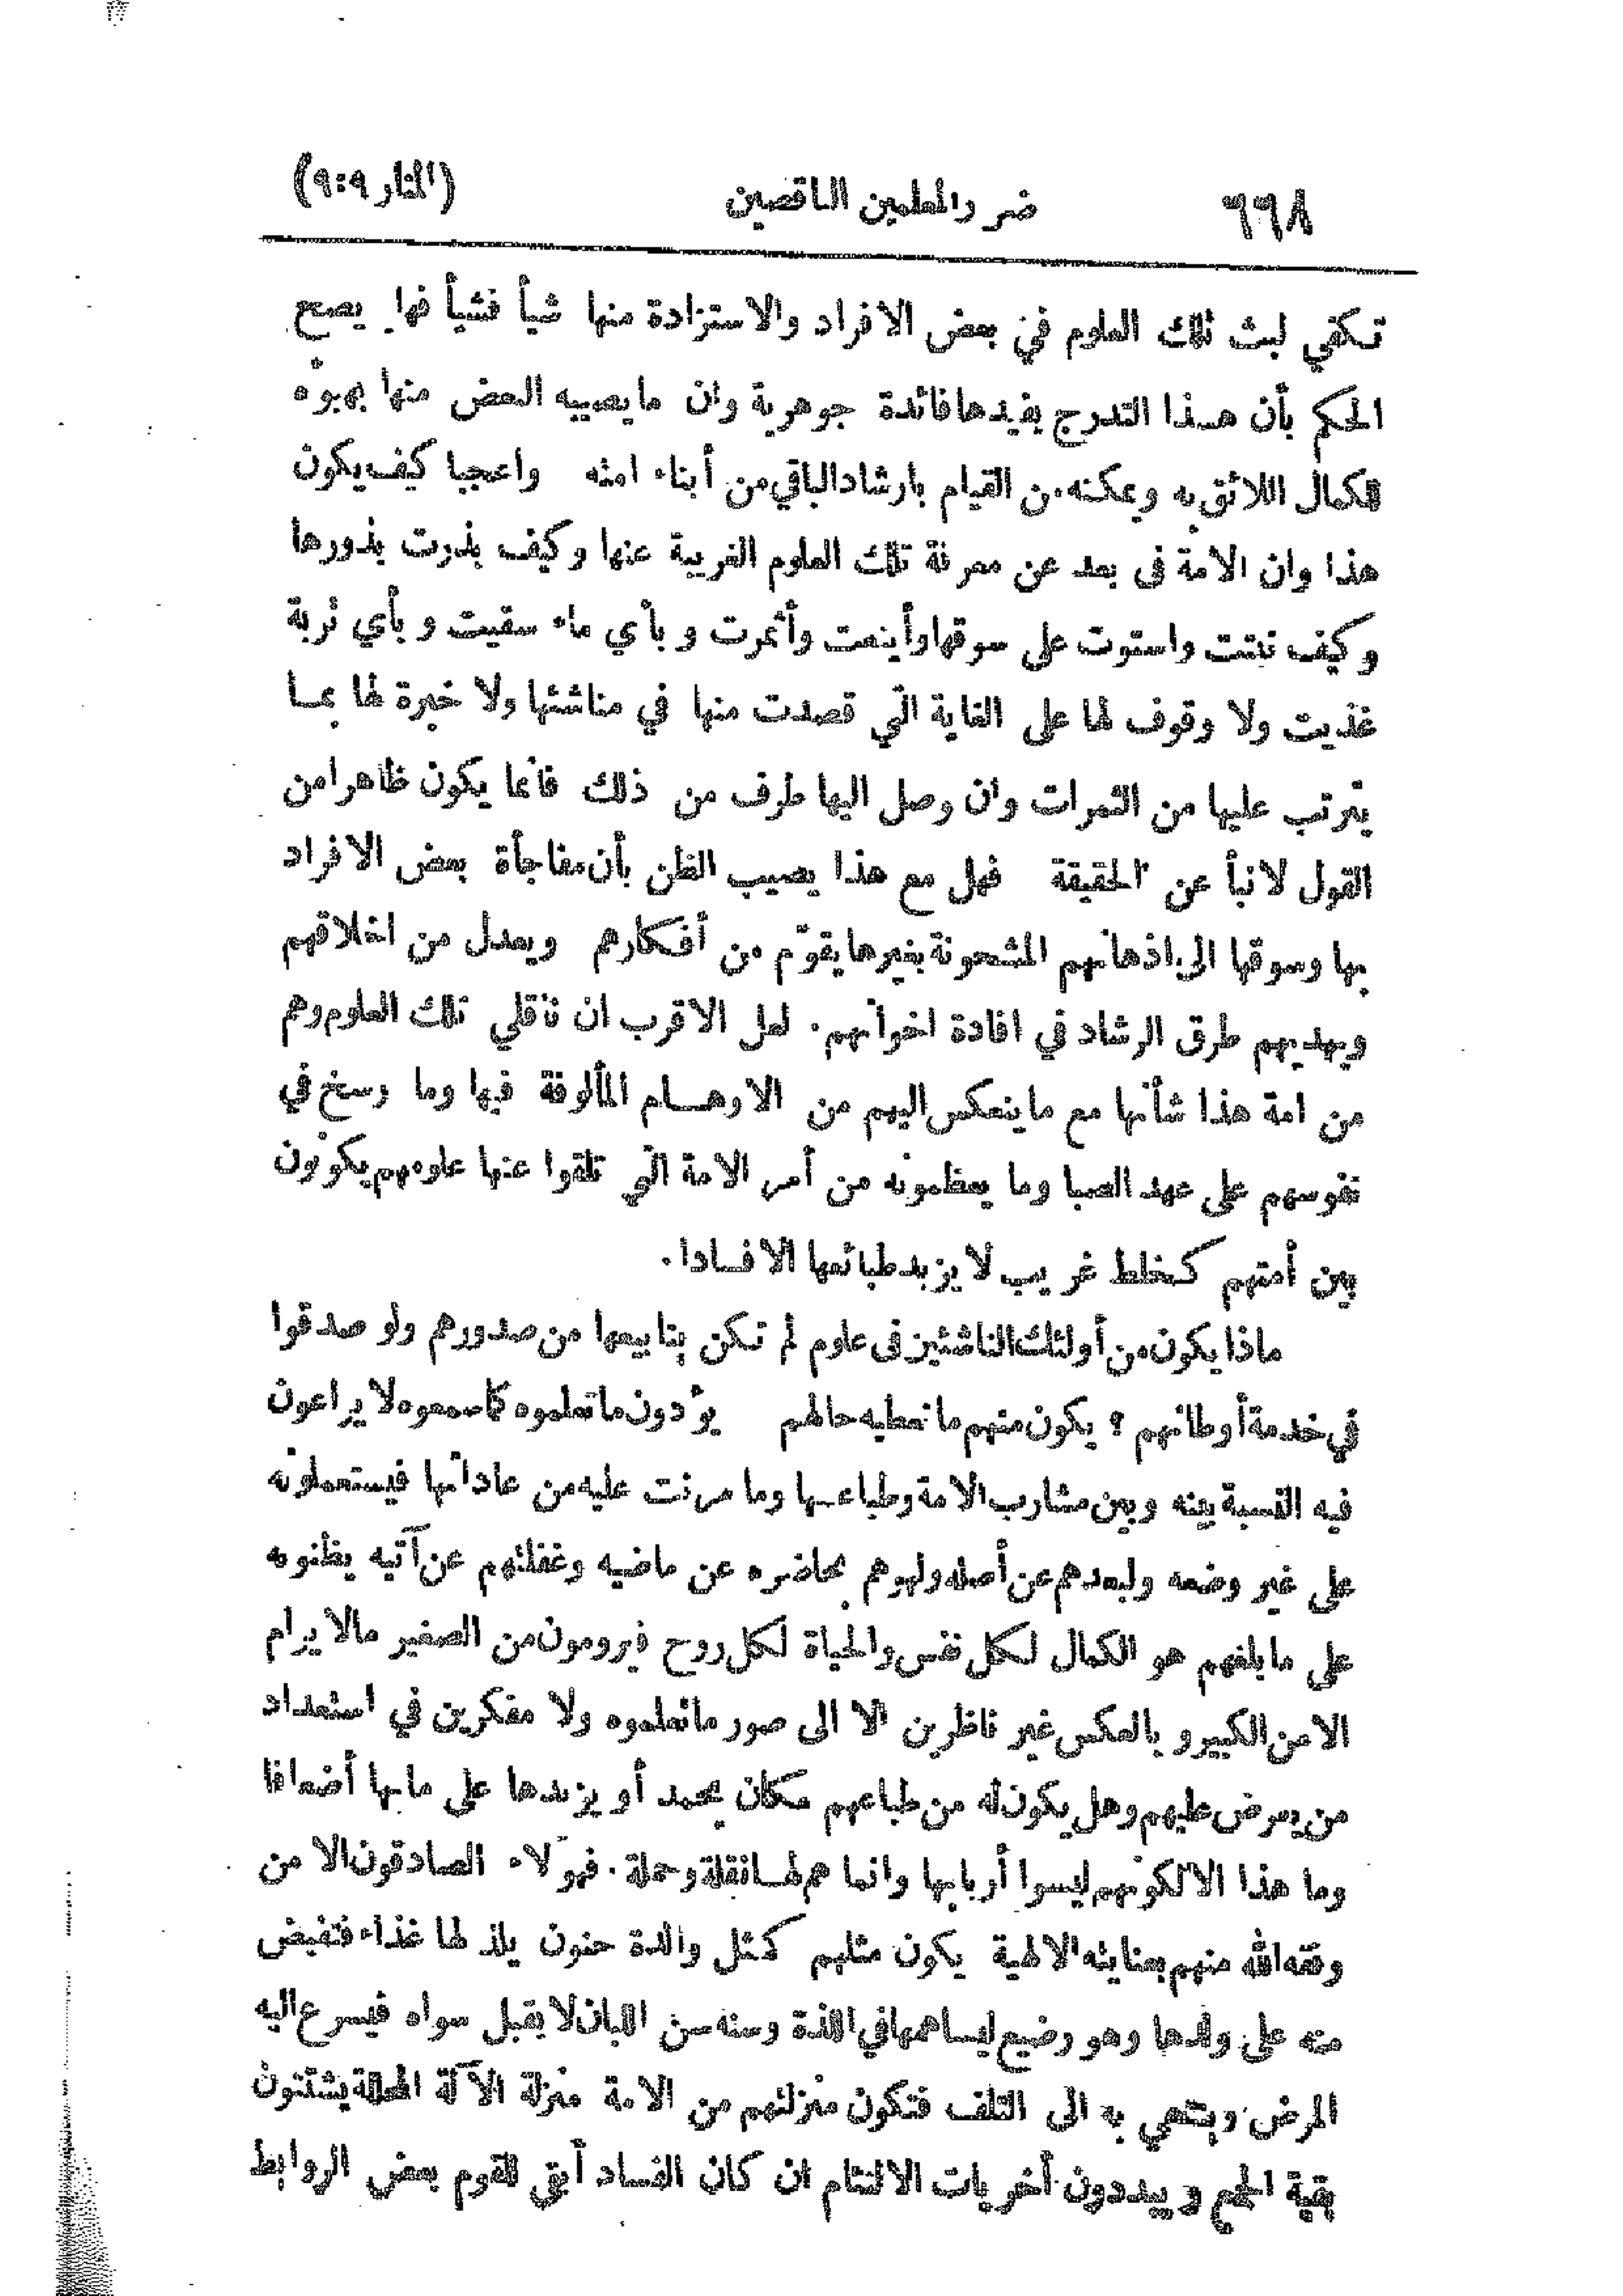 ٦٦٨ ضرر المعلمين الناقصين (المنار ٩:٩)
تكفي لبث تلك العلوم في بعض الافراد والاستزادة منها شيأ فشيأ فهل يصح
الحكم بأن هذا التدرج يفيدها فائدة جوهرية وان ما يصيبه البعض منها يهيؤه
للكمال اللائق به ويمكنه من القيام بارشاد الباقي من أبناء امته واعجبا كيف يكون
هذا وان الامة في بعد عن معرفة تلك العلوم الغريبة عنها وكيف بذرت بذورها
وكيف نبتت واستوت على سوقها وأينعت وأثمرت وبأي ماء سقيت وبأي تربة
غذيت ولا وقوف لها على الغاية التي قصدت منها في مناشئها ولا خبرة لها بمـا
يترتب عليها من الثمرات وان وصل اليها طرف من ذلك فانما يكون ظاهرا من
القول لا نبأ عن الحقيقة فهل مع هذا يصيب الظن بأن مفاجأة بعض الافراد
بها وسوقها الى اذهانهم المشحونة بغيرها يقوّم من أفكارهم ويعدل من اخلاقهم
ويهديهم طرق الرشاد في افادة اخوانهم. لعل الاقرب ان ناقلي تلك العلوم وهم
من امة هذا شأنها مع ما ينعكس اليهم من الاوهـام المألوفة فيها وما رسخ في
نفوسهم على عهد الصبا وما يعظمونه من أمر الامة التي تلقوا عنها علومهم يكونون
بين أمتهم كخلط غريب لا يزيد طبائعها الا فسادا.
ماذا يكون من أولئك الناشئين في علوم لم تكن ينابيعها من صدورهم ولو صدقوا
في خدمة أوطانهم ؟ يكون منهم ما تعطيه حالهم يؤدون ما تعلموه كما سمعوه لا يراعون
فيه النسبة بينه وبين مشارب الامة وطباعـها وما مرنت عليه من عاداتها فيستعملونه
على غير وضعه ولبعدهم عن أصله ولهوهم بحاضره عن ماضيه وغفلتهم عن آتيه يظنونه
على ما بلغهم هو الكمال لكل نفس والحياة لكل روح فيرومون من الصغير مالا يرام
الا من الكبير وبالعكس غير ناظرين الا الى صور ما تعلموه ولا مفكرين في استعداد
من يعرض عليهم وهل يكون له من طباعهم مكان يحمد أو يزيدها على ما بها أضعافا
وما هذا الا لكونهم ليسوا أربابها وانما هم لهـا نقلة وحملة. فهؤلاء الصادقون الا من
وفقه الله منهم بعنايته الالهية يكون مثلهم كمثل والدة حنون يلذ لها غذاء فتفيض
منه على ولدها وهو رضيع ليساهمها في اللذة وسنه سن اللبان لا يقبل سواه فيسرع اليه
المرض وينتهي به الى التلف فتكون منزلتهم من الامة منزلة الآلة المحللة يشتتون
بقية الجمع ويبددون أخريات الالتئام ان كان الفساد أبقى للقوم بعض الروابط